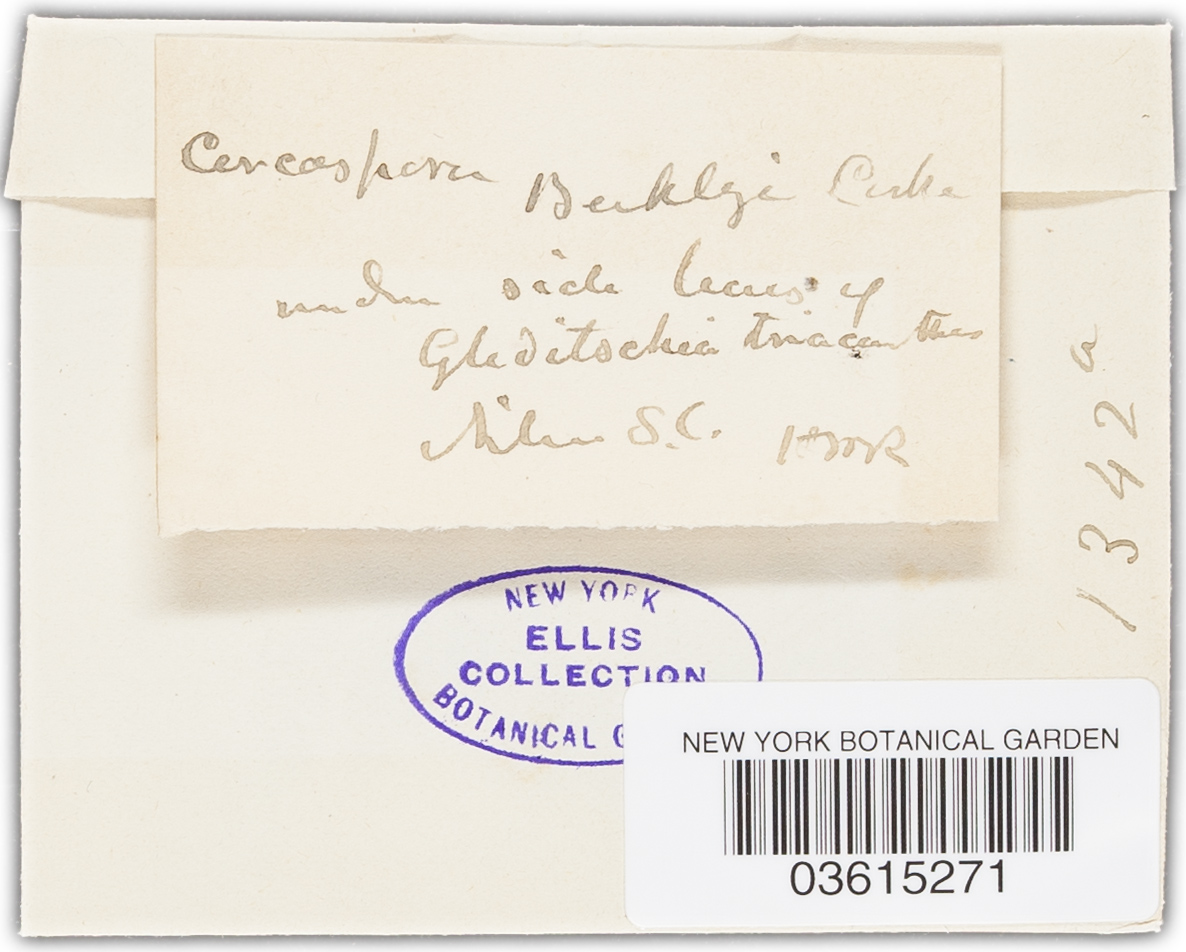 Cercospora Berklyi Cooke
under side leaves of
Gleditschia triacanthos
Aiken S.C. HWR
1342 a
NEW YORK
ELLIS
COLLECTION
BOTANICAL G
NEW YORK BOTANICAL GARDEN
03615271